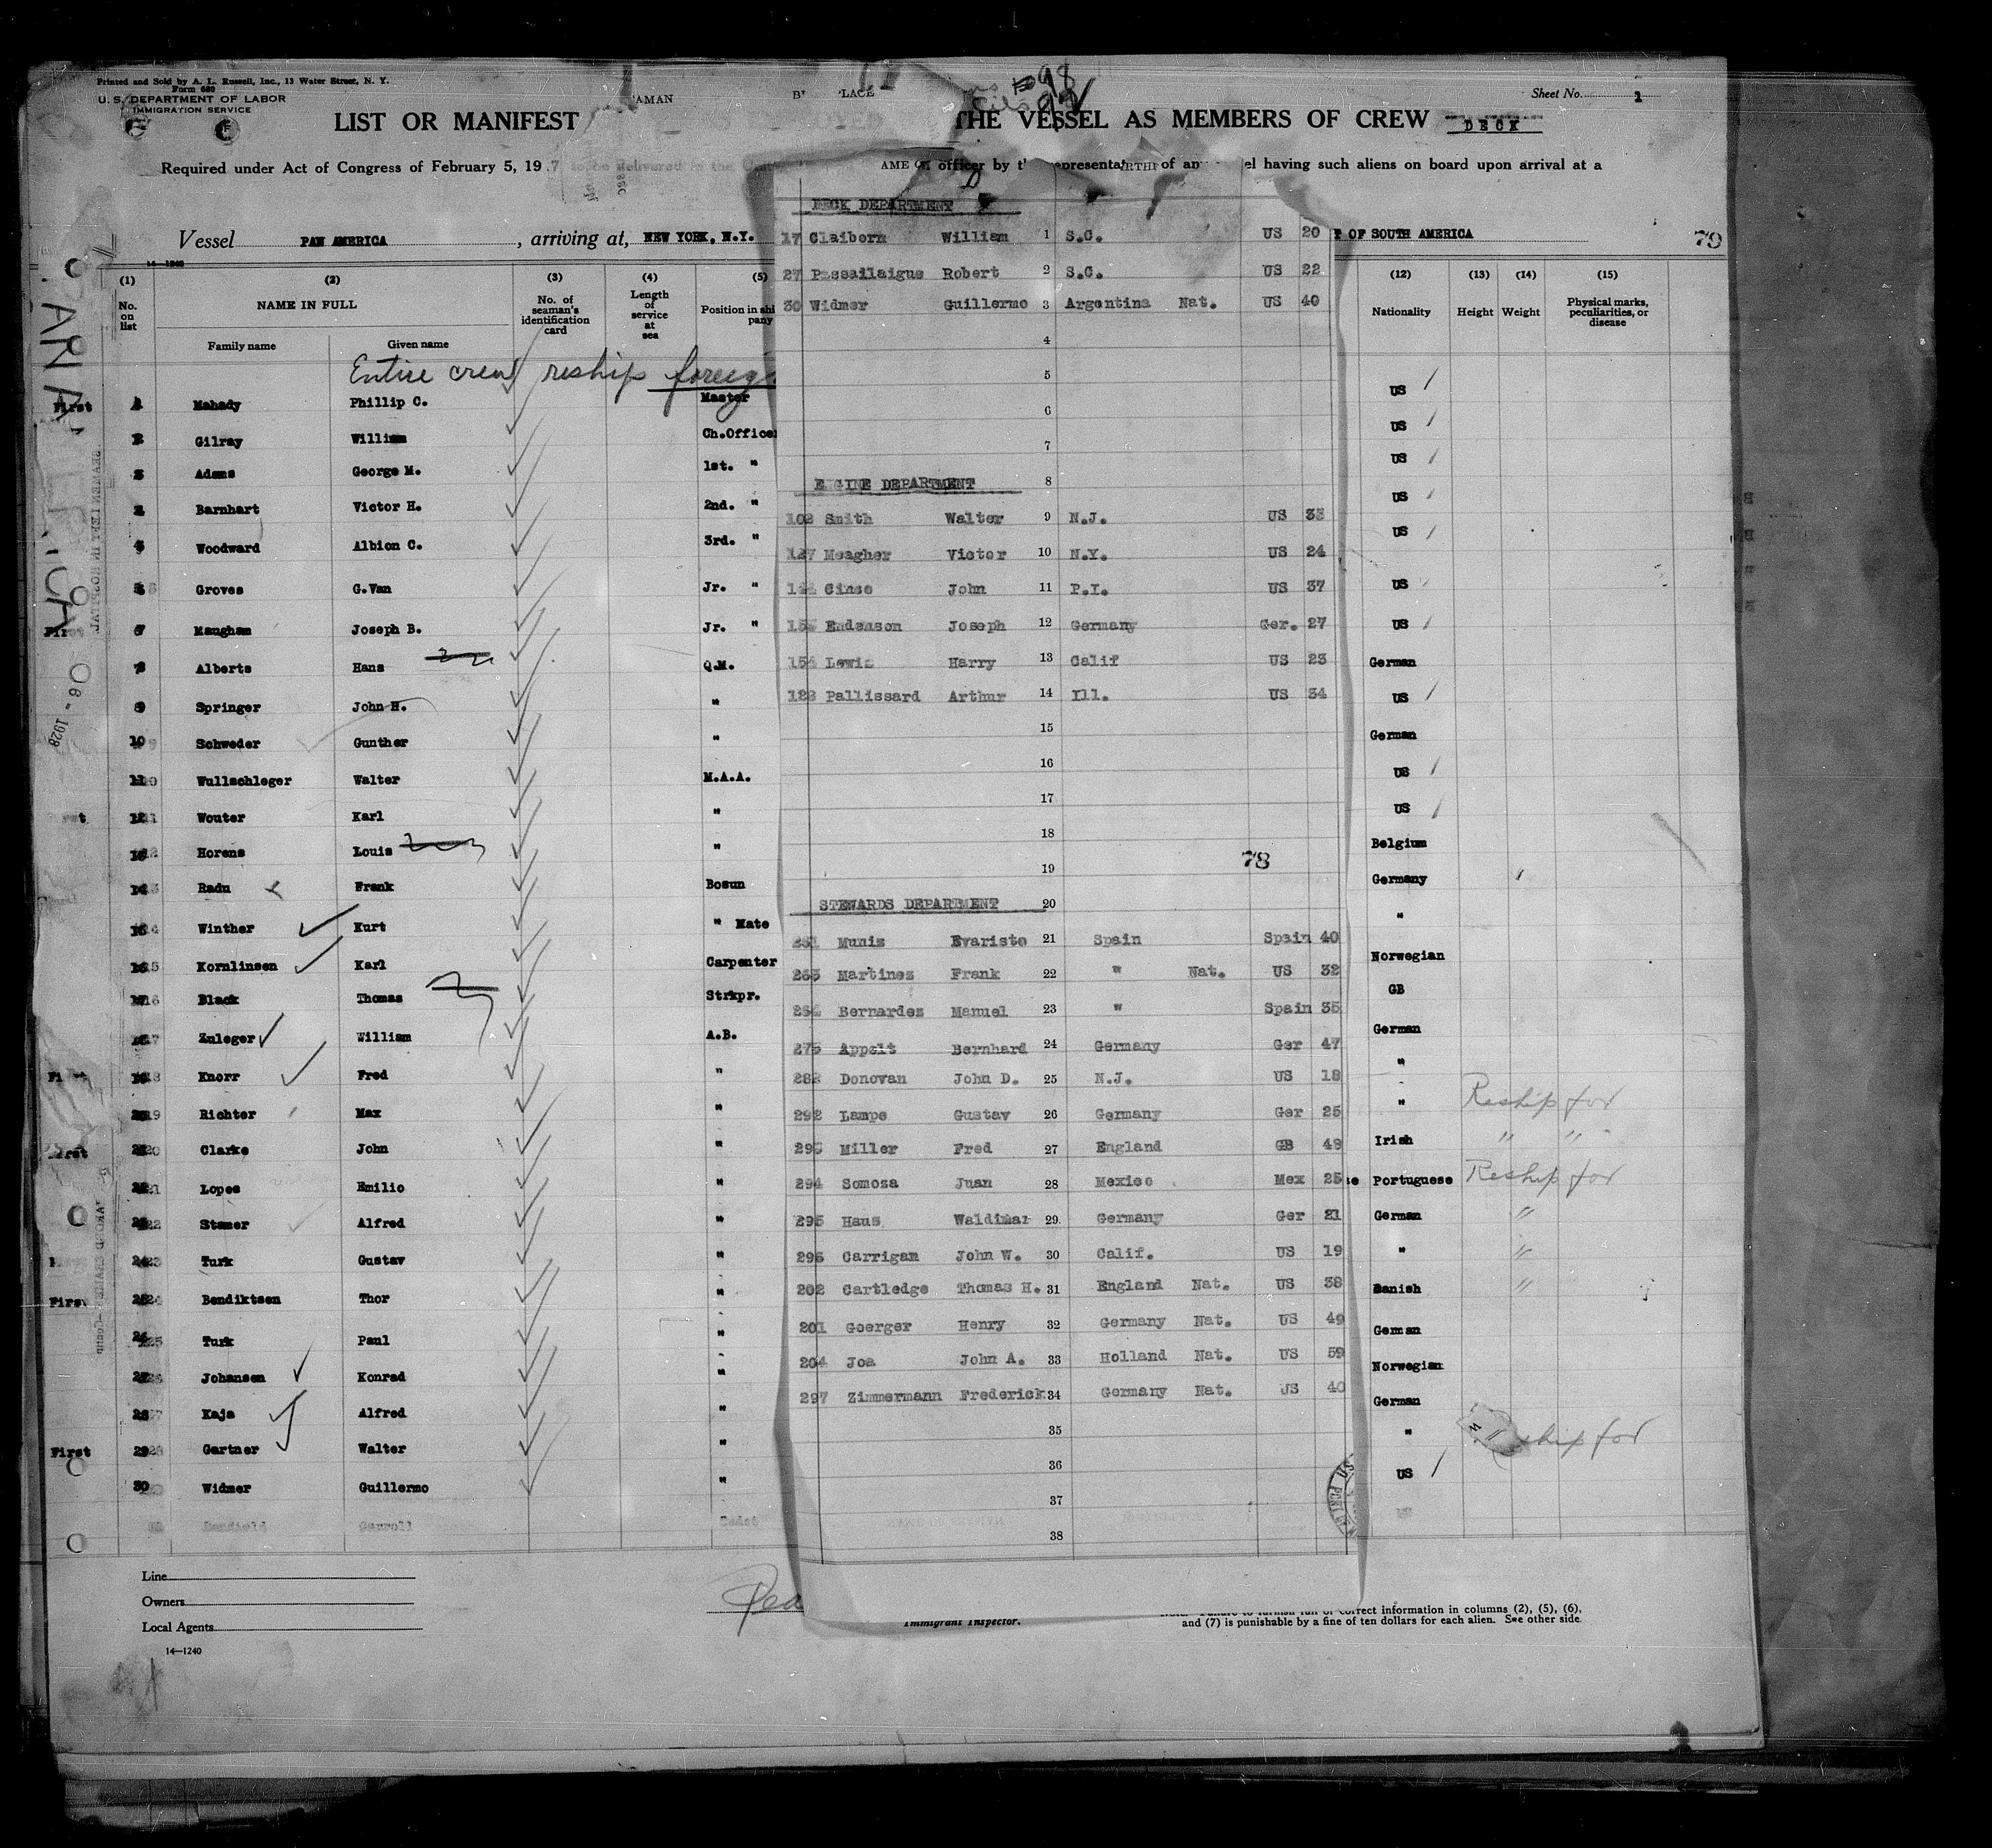 Printed and Sold by A. L. Russell, Inc., 13 Water Street, N. Y.
Form 680
U. S. DEPARTMENT OF LABOR
IMMIGRATION SERVICE
Sheet No. 1
LIST OR MANIFEST THE VESSEL AS MEMBERS OF CREW DECK
Required under Act of Congress of February 5, 19 7 to be delivered to the officer by th epresenta of an el having such aliens on board upon arrival at a
Vessel PAN AMERICA, arriving at, NEW YORK, N.Y. T OF SOUTH AMERICA 79
14—1240
(1) (2) (3) (4) (5) (12) (13) (14) (15)
No. on list NAME IN FULL No. of seaman's identification card Length of service at sea Position in shi pany Nationality Height Weight Physical marks, peculiarities, or disease
Family name Given name
Entire crew reship foreig
First 1 Mahady Phillip C. Master US
2 Gilray William Ch.Office US
3 Adams George M. 1st. " US
Barnhart Victor H. 2nd. " US
Woodward Albion C. 3rd. " US
Groves G.Van Jr. " US
First Maughan Joseph B. Jr. " US
8 Alberts Hans Q.M. German
9 Springer John H. " US
10 Schweder Gunther " German
11 Wullschleger Walter M.A.A. US
12 Wouter Karl " US
Horens Louis " Belgium
Radu Frank Bosun Germany
Winther Kurt " Mate "
Kornlinsen Karl Carpenter Norwegian
Black Thomas Strkpr. GB
Zuleger William A.B. German
Knorr Fred " "
Richter Max " " Reship for
Clarke John " Irish " "
Lopes Emilio " Portuguese Reship for
Stamer Alfred " German "
Turk Gustav " " "
First Bendiktsen Thor " Danish "
Turk Paul " German
Johansen Konrad " Norwegian
Kaja Alfred " German
First 29 Gartner Walter " " ship for
30 Widmer Guillermo " US
Carroll Cadet
DECK DEPARTMENT
17 Claiborn William 1 S.C. US 20
27 Passailaigue Robert 2 S.C. US 22
30 Widmer Guillermo 3 Argentina Nat. US 40
4
5
6
7
ENGINE DEPARTMENT 8
102 Smith Walter 9 N.J. US 33
127 Meagher Victor 10 N.Y. US 24
Cinco John 11 P.I. US 37
Endenson Joseph 12 Germany Ger. 27
Lewis Harry 13 Calif US 23
Pallissard Arthur 14 Ill. US 34
15
16
17
18
19
78
STEWARDS DEPARTMENT 20
Munis Evaristo 21 Spain Spain 40
Martinez Frank 22 " Nat. US 32
Bernardez Manuel 23 " Spain 35
275 Appelt Bernhard 24 Germany Ger 47
282 Donovan John D. 25 N.J. US 18
292 Lampe Gustav 26 Germany Ger 25
293 Miller Fred 27 England GB 48
294 Somoza Juan 28 Mexico Mex 25
295 Haus Waldimar 29 Germany Ger 21
296 Carrigan John W. 30 Calif. US 19
202 Cartledge Thomas H. 31 England Nat. US 38
201 Goerger Henry 32 Germany Nat. US 49
204 Joa John A. 33 Holland Nat. US 59
297 Zimmermann Frederick 34 Germany Nat. US 40
35
36
37
38
Line
Owners
Local Agents
14—1240
Immigrant Inspector.
correct information in columns (2), (5), (6),
and (7) is punishable by a fine of ten dollars for each alien. See other side.